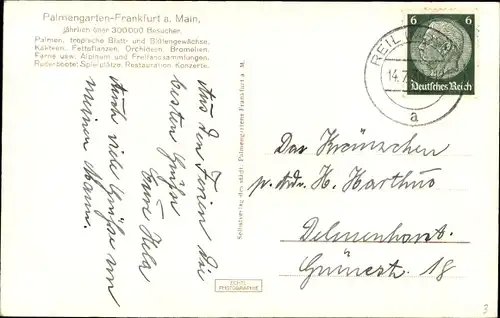 Palmengarten-Frankfurt a. Main,
jährlich über 300000 Besucher.
Palmen, tropische Blatt- und Blütengewächse,
Kakteen, Fettpflanzen, Orchideen, Bromelien,
Farne usw. Alpinum und Freilandsammlungen.
Ruderboote, Spielplätze, Restauration, Konzerte.
Aus den Ferien die
besten Grüße
Eure Hela
Auch viele Grüße von
meinem Mann.
Selbstverlag des städt. Palmengartens Frankfurt a. M.
ECHTE
PHOTOGRAPHIE
6 6
Deutsches Reich
REIL
14.7.
a
Das Kränzchen
p. Adr. H. Harthus
Delmenhorst.
Grünestr. 18
3